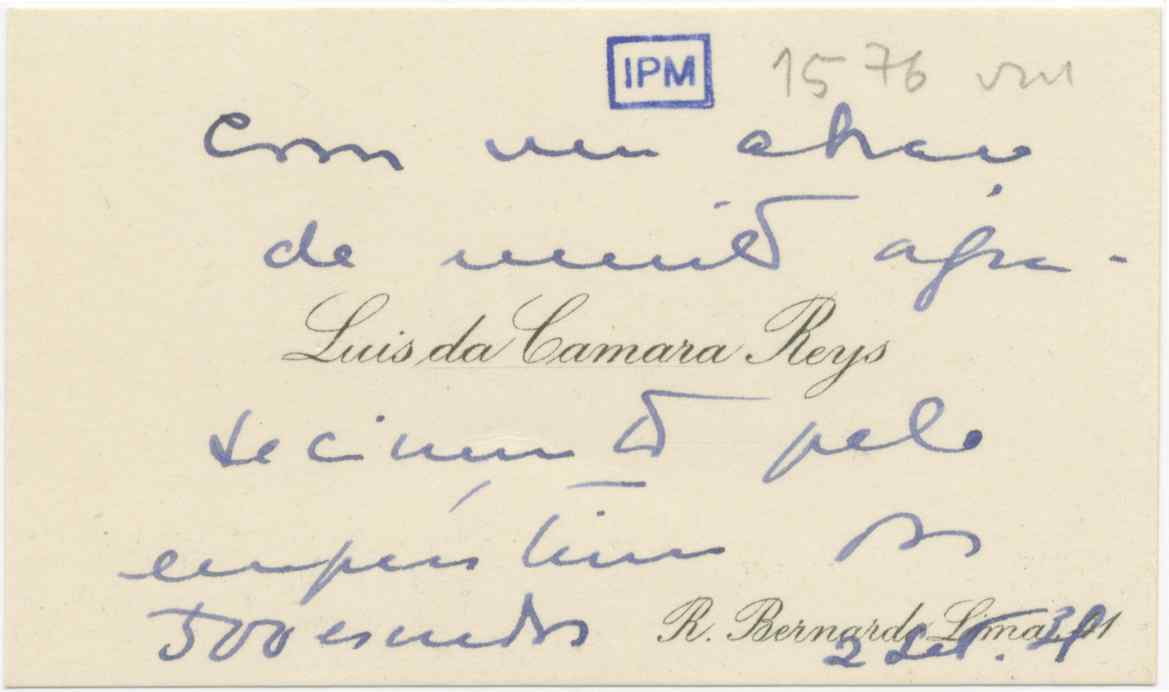 IPM 1576 vm
Com um abraço
de muito agra-
Luis da Camara Reys
decimento pelo
empréstimo dos
500 escudos
R. Bernardo Lima,
2 Set.